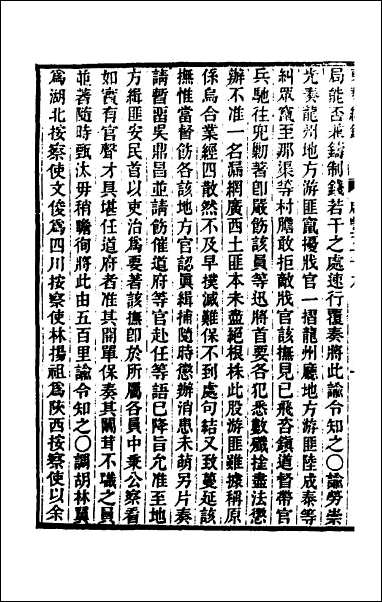 局能否兼鑄制錢若干之處速行覆奏將此諭令知之〇諭勞崇
光奏龍州地方游匪竄擾戕官一摺龍州廳地方游匪陸成泰等
糾眾竄至那渠等村膽敢拒敵戕官該撫見已飛咨鎮道督帶官
兵馳往兜勦著卽嚴飭該員等迅將首要各犯悉數殲擒盡法懲
辦不准一名漏網廣西土匪本未盡絕根株此股游匪雖據稱原
係烏合業經四散然不及早撲滅難保不到處句結又致蔓延該
撫惟當督飭各該地方官認眞緝捕隨時懲辦消患未萌另片奏
請暫畱吳鼎昌並請飭催道府等官赴任等語已降旨允准至地
方緝匪安民首以吏治爲要著該撫卽於所屬各員中秉公察看
如實有官聲才具堪任道府者准其開單保奏其闒茸不職之員
並著隨時甄汰毋稍瞻徇將此由五百里諭令知之〇調胡林翼
爲湖北按察使文俊爲四川按察使林揚祖爲陝西按察使以余